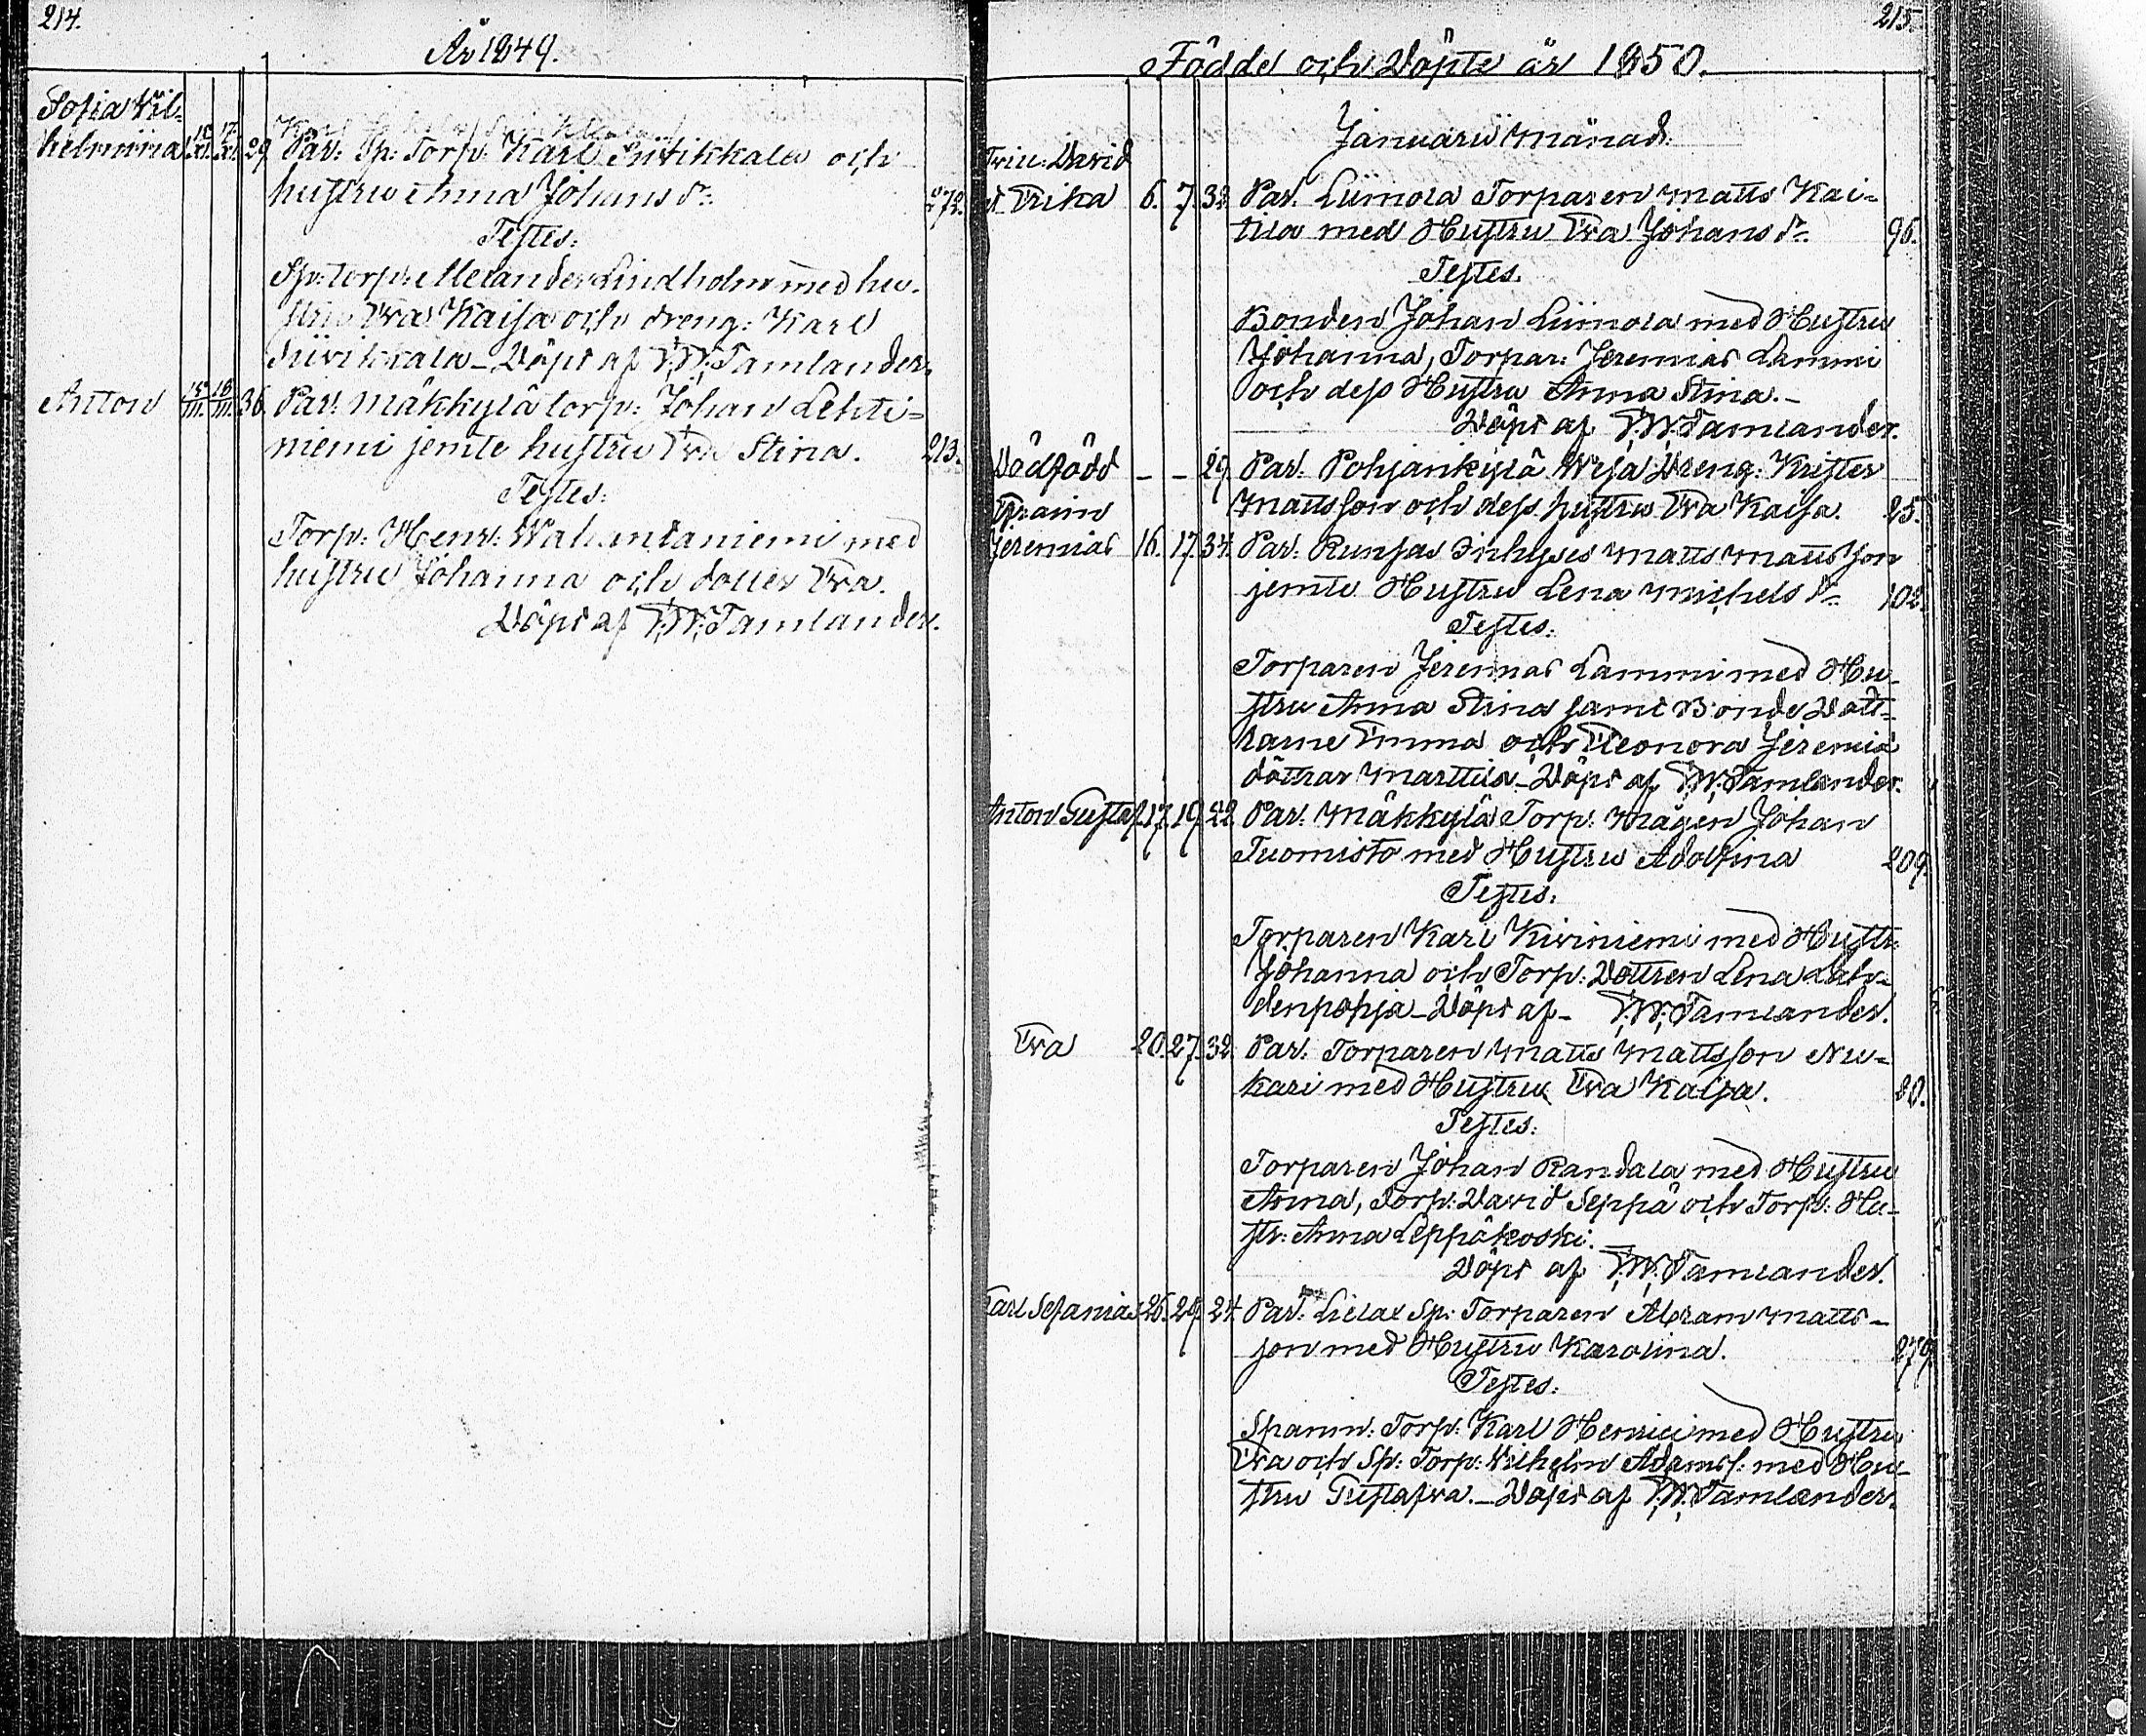 214.
År 1849.
Sofia Vil-
helmiina 15/XI. 17/XI. 29 Par: Sp: Torp: Karl Siivikkala och
hustru Anna Johans dr. 272.
Testes:
Sp: torp: Alexander Lindholm med hu-
stru Eva Kaisa och dreng: Karl
Siivikkala – Döpt af F. W. Tamlander.
Anton 15/III. 18/III. 36. Par: Mäkkylä torp: Johan Lehti-
niemi jemte hustru Eva Stina. 213.
Testes:
Torp: Henr: Wahantaniemi med
hustru Johanna och dotter Eva.
Döpt af F. W. Tamlander.
215.
Födde och Döpte år 1850.
Januarii Månad.
Trin: David
et Erika 6. 7. 32. Par. Liimola Torparen Matts Kai-
tila med Hustru Eva Johans dr. 96.
Testes.
Bonden Johan Liimola med Hustru
Johanna, Torpar: Jeremias Lammi
och dess Hustru Anna Stina. –
Döpt af F. W. Tamlander.
Dödfödd – – 29. Par. Pohjankylä Weja Dreng: Krister
Mattsson och dess hustru Eva Kaisa. 25.
Efraim
Jeremias 16. 17. 34. Par: Runsas Inhyses Matts Mattsson
jemte Hustru Lena Michels dr. 102.
Testes:
Torparen Jeremias Lammi med Hu-
stru Anna Stina samt Bonde Dött-
rarne Emma och Eleonora Jeremiæ
döttrar Marttila – Döpt af F. W. Tamlander.
Anton Gustaf. 17. 19. 22. Par. Mäkkylä Torp: Mågen Johan
Tuomisto med Hustru Adolfina 209.
Testes:
Torparen Karl Kiviniemi med Hustr:
Johanna och Torp: Dottren Lena Lah-
denpohja – Döpt af – F. W. Tamlander.
Eva 20. 27. 32. Par. Torparen Matts Mattsson Nu-
kari med Hustru Eva Kaisa. 80.
Testes:
Torparen Johan Randala med Hustru
Anna, Torp: David Seppä och Torp: Hu-
str: Anna Leppäkoski. –
Döpt af F. W. Tamlander.
Karl Sefanias 26. 29. 24. Par: Lielax Sp: Torparen Abram Matts-
son med Hustru Karolina. 279.
Testes:
Spanm: Torp: Karl Henrici med Hustru
Eva och Sp: Torp: Vilhelm Adamss. med Hu-
stru Gustafva. – Döpt af F. W. Tamlander.